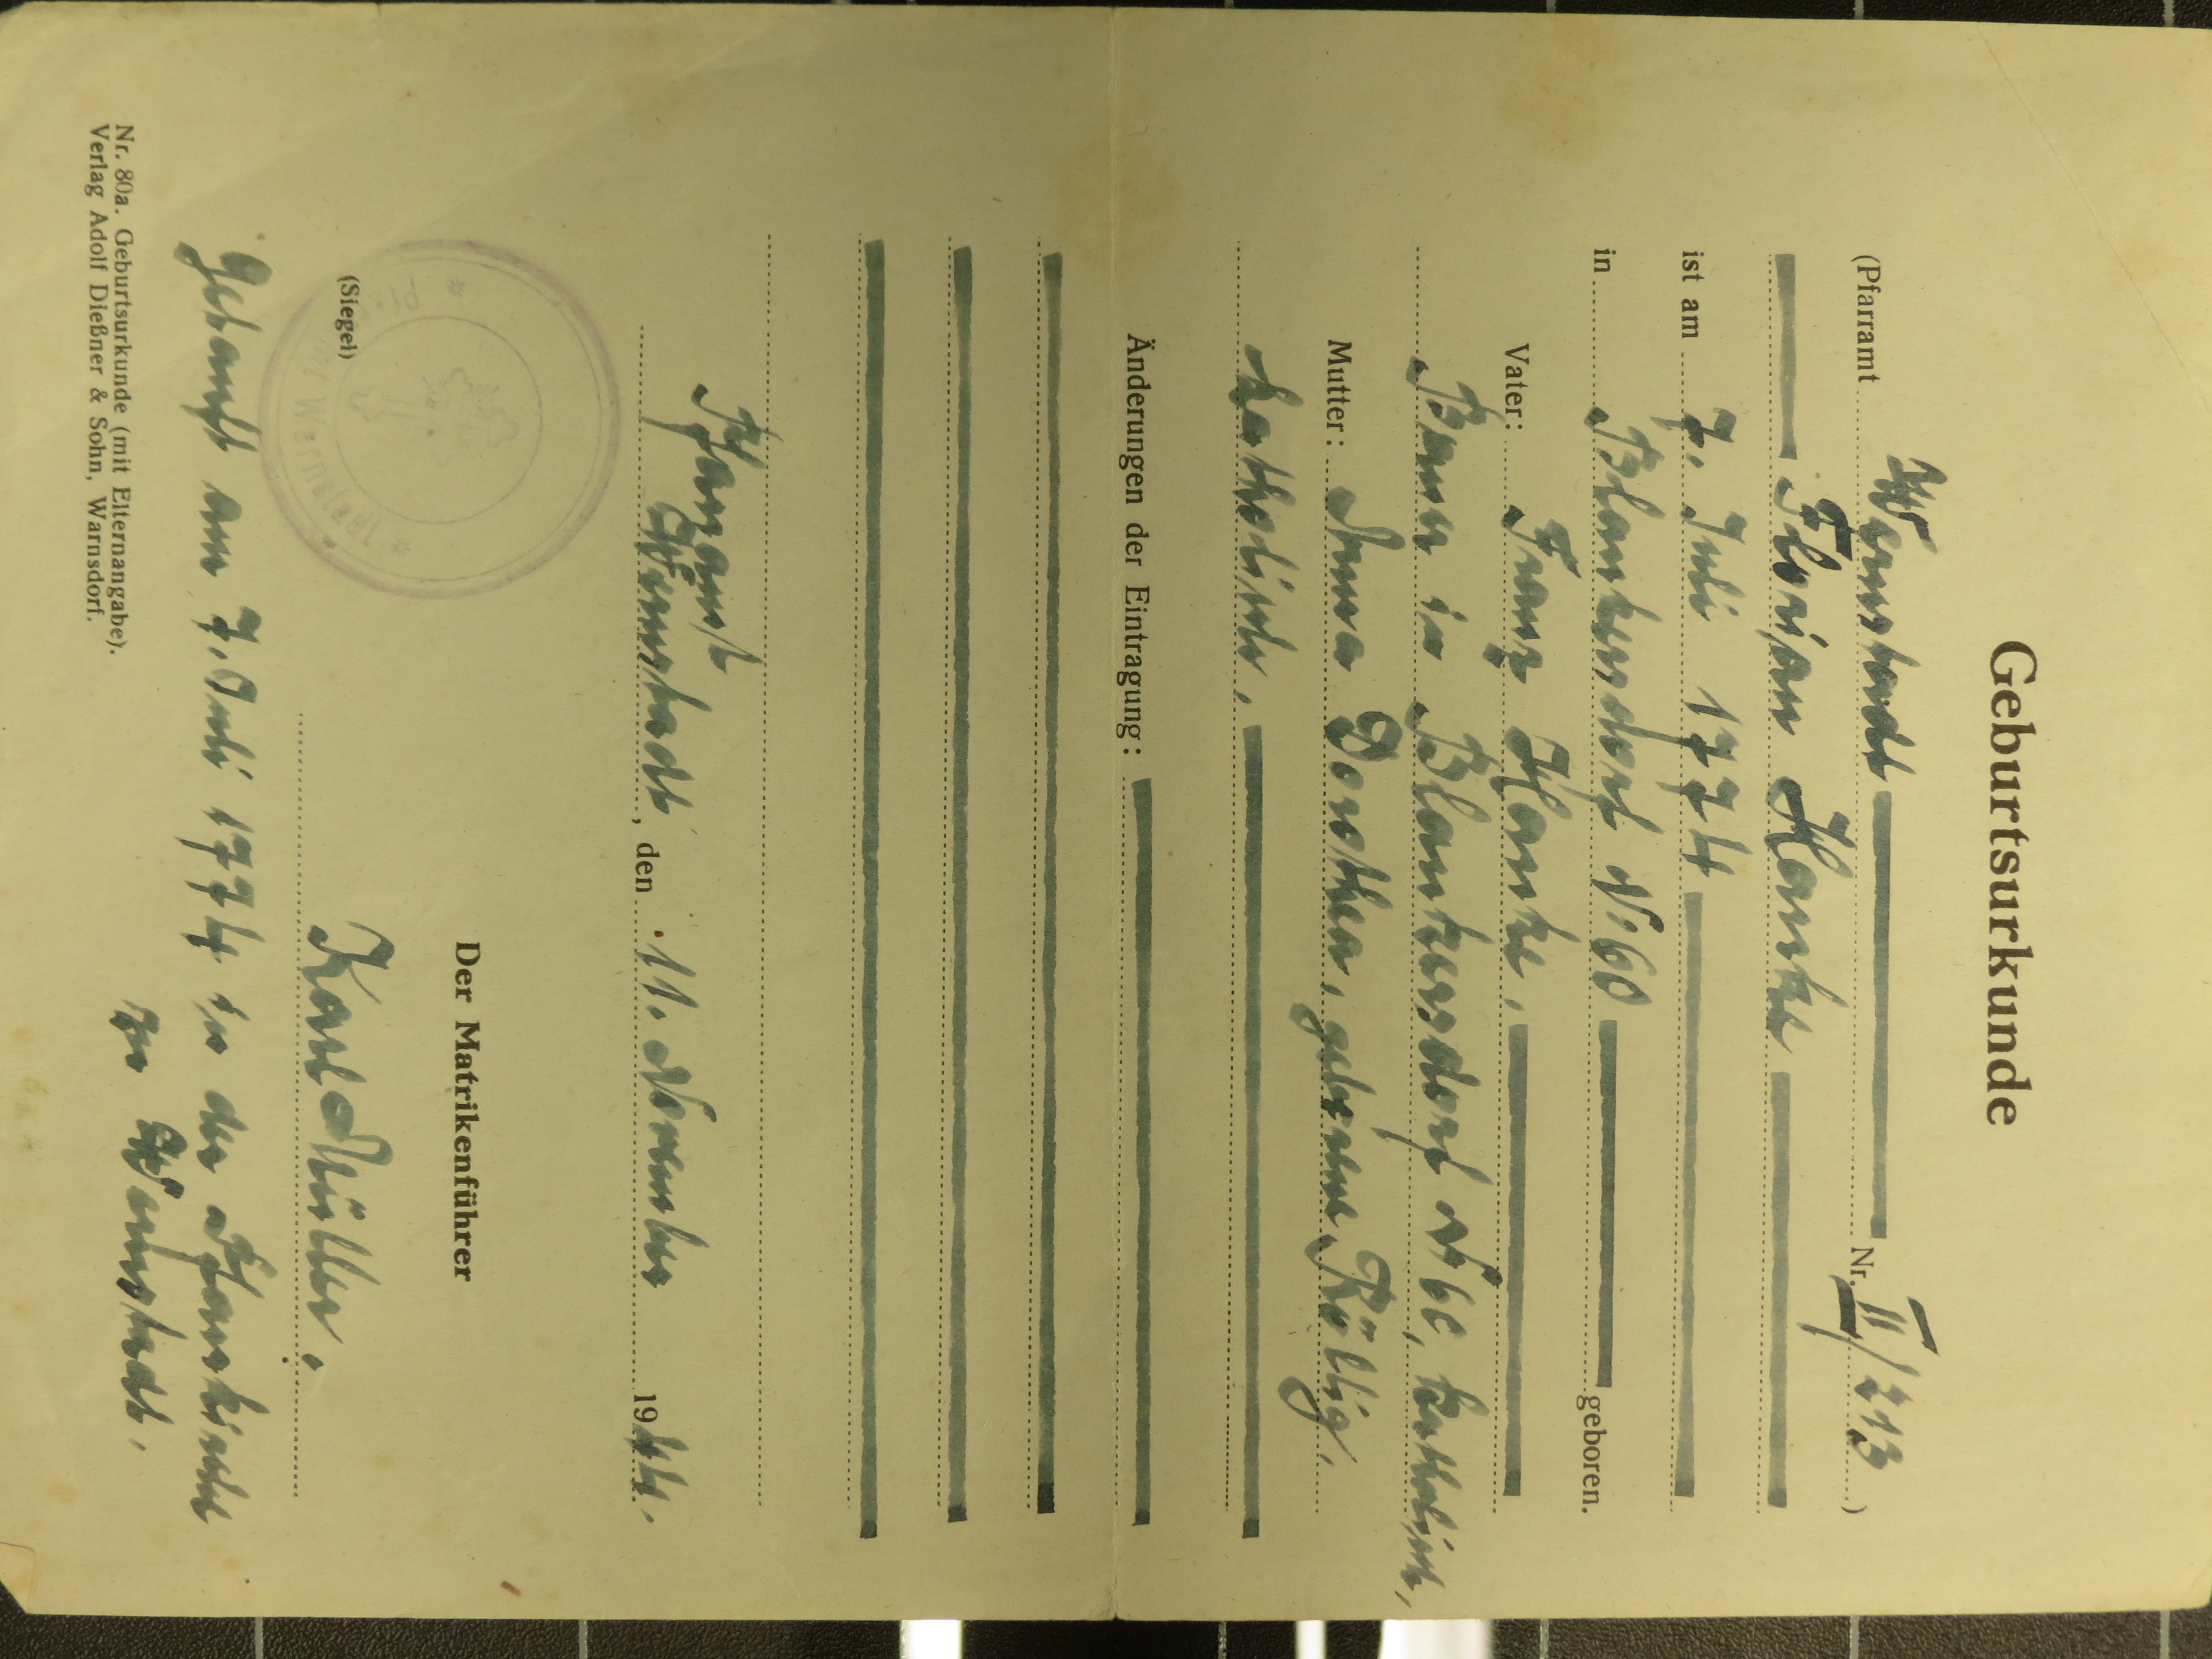 Geburtsurkunde
(Pfarramt Wernstadt Nr. II/213)
Florian Hanke
ist am 7. Juli 1774
in Blankersdorf N. 60 geboren.
Vater: Franz Hanke,
Bauer in Blankersdorf N. 60, katholisch,
Mutter: Anna Dorothea, geborene Röllig,
katholisch.
Änderungen der Eintragung:
Pfarramt
Wernstadt, den 11. November 1944.
Der Matrikenführer
(Siegel)
Wernstadt
Karl Müller.
Getauft am 7. Juli 1774 in der Pfarrkirche
zu Wernstadt.
Nr. 80a. Geburtsurkunde (mit Elternangabe).
Verlag Adolf Dießner & Sohn, Warnsdorf.